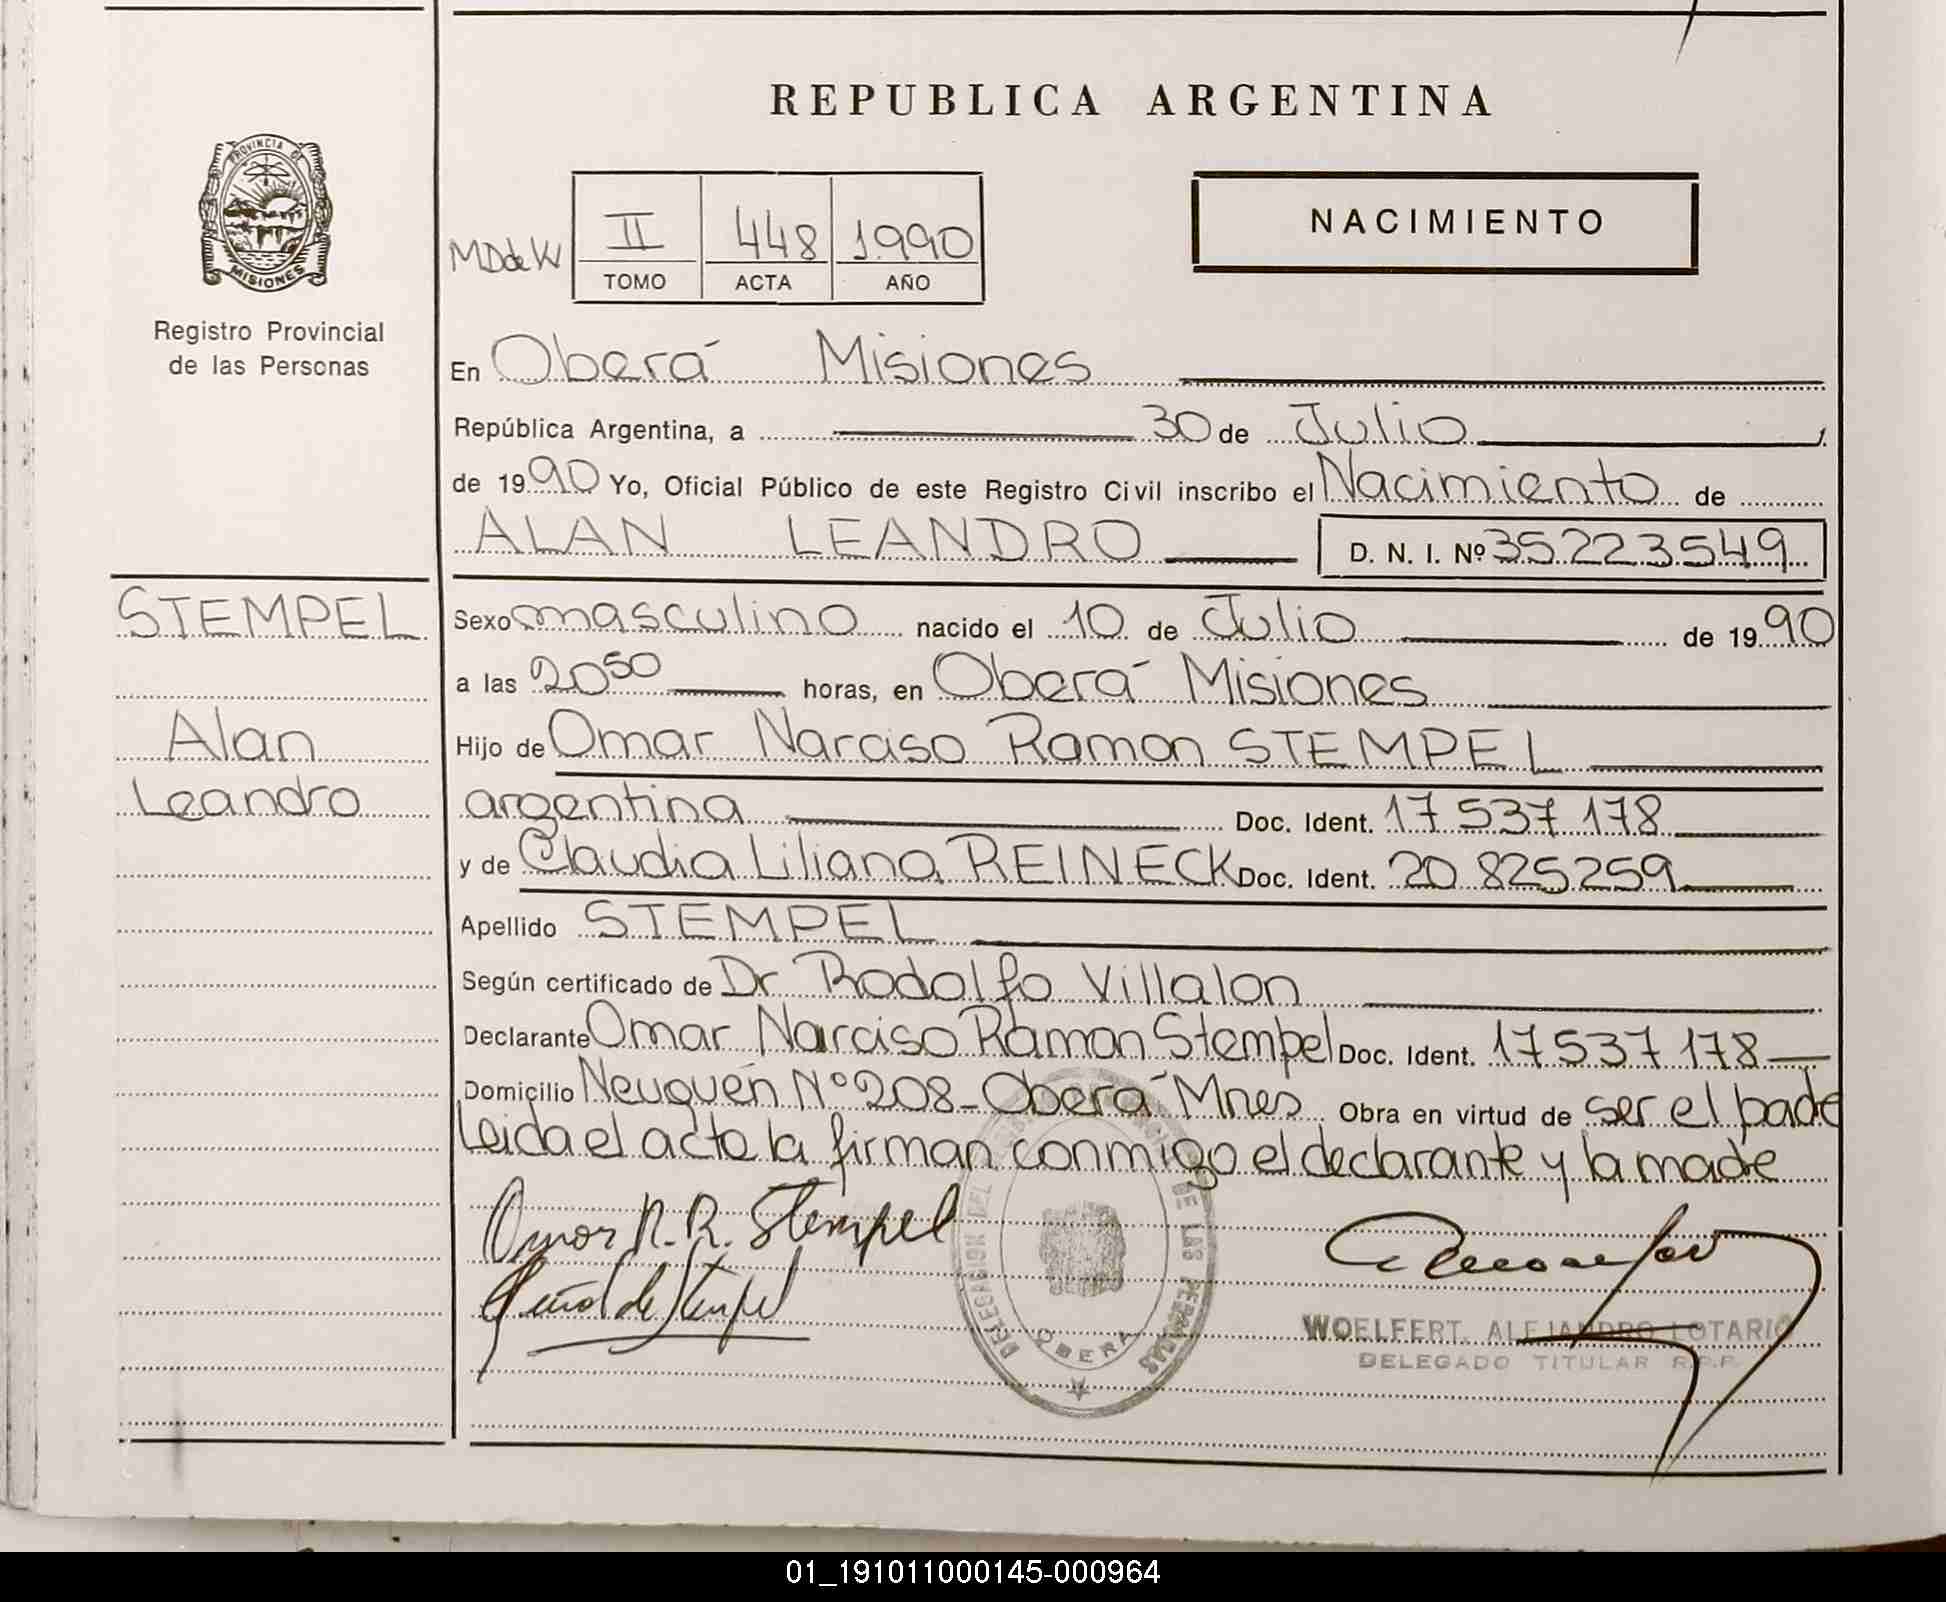 REPUBLICA ARGENTINA
PROVINCIA DE
MISIONES
Registro Provincial
de las Personas
NACIMIENTO
MD de W II 448 1.990
TOMO ACTA AÑO
En Oberá Misiones
República Argentina, a 30 de Julio
de 1990 Yo, Oficial Público de este Registro Civil inscribo el Nacimiento de
ALAN LEANDRO D. N. I. Nº 35.223.549
STEMPEL
Alan
Leandro
Sexo masculino nacido el 10 de Julio de 1990
a las 20 50 horas, en Oberá Misiones
Hijo de Omar Narciso Ramon STEMPEL
argentina Doc. Ident. 17 537 178
y de Claudia Liliana REINECK Doc. Ident. 20 825259
Apellido STEMPEL
Según certificado de Dr Rodolfo Villalon
Declarante Omar Narciso Ramon Stempel Doc. Ident. 17 537 178
Domicilio Neuquén Nº 208 - Oberá Mnes Obra en virtud de ser el padre
Leida el acta la firman conmigo el declarante y la madre
Omar N. R. Stempel
de Stempel
DELEGACION DEL DE LAS PERSONAS
OBERA
WOELFERT, ALEJANDRO LOTARIO
DELEGADO TITULAR R.P.P.
01_191011000145-000964